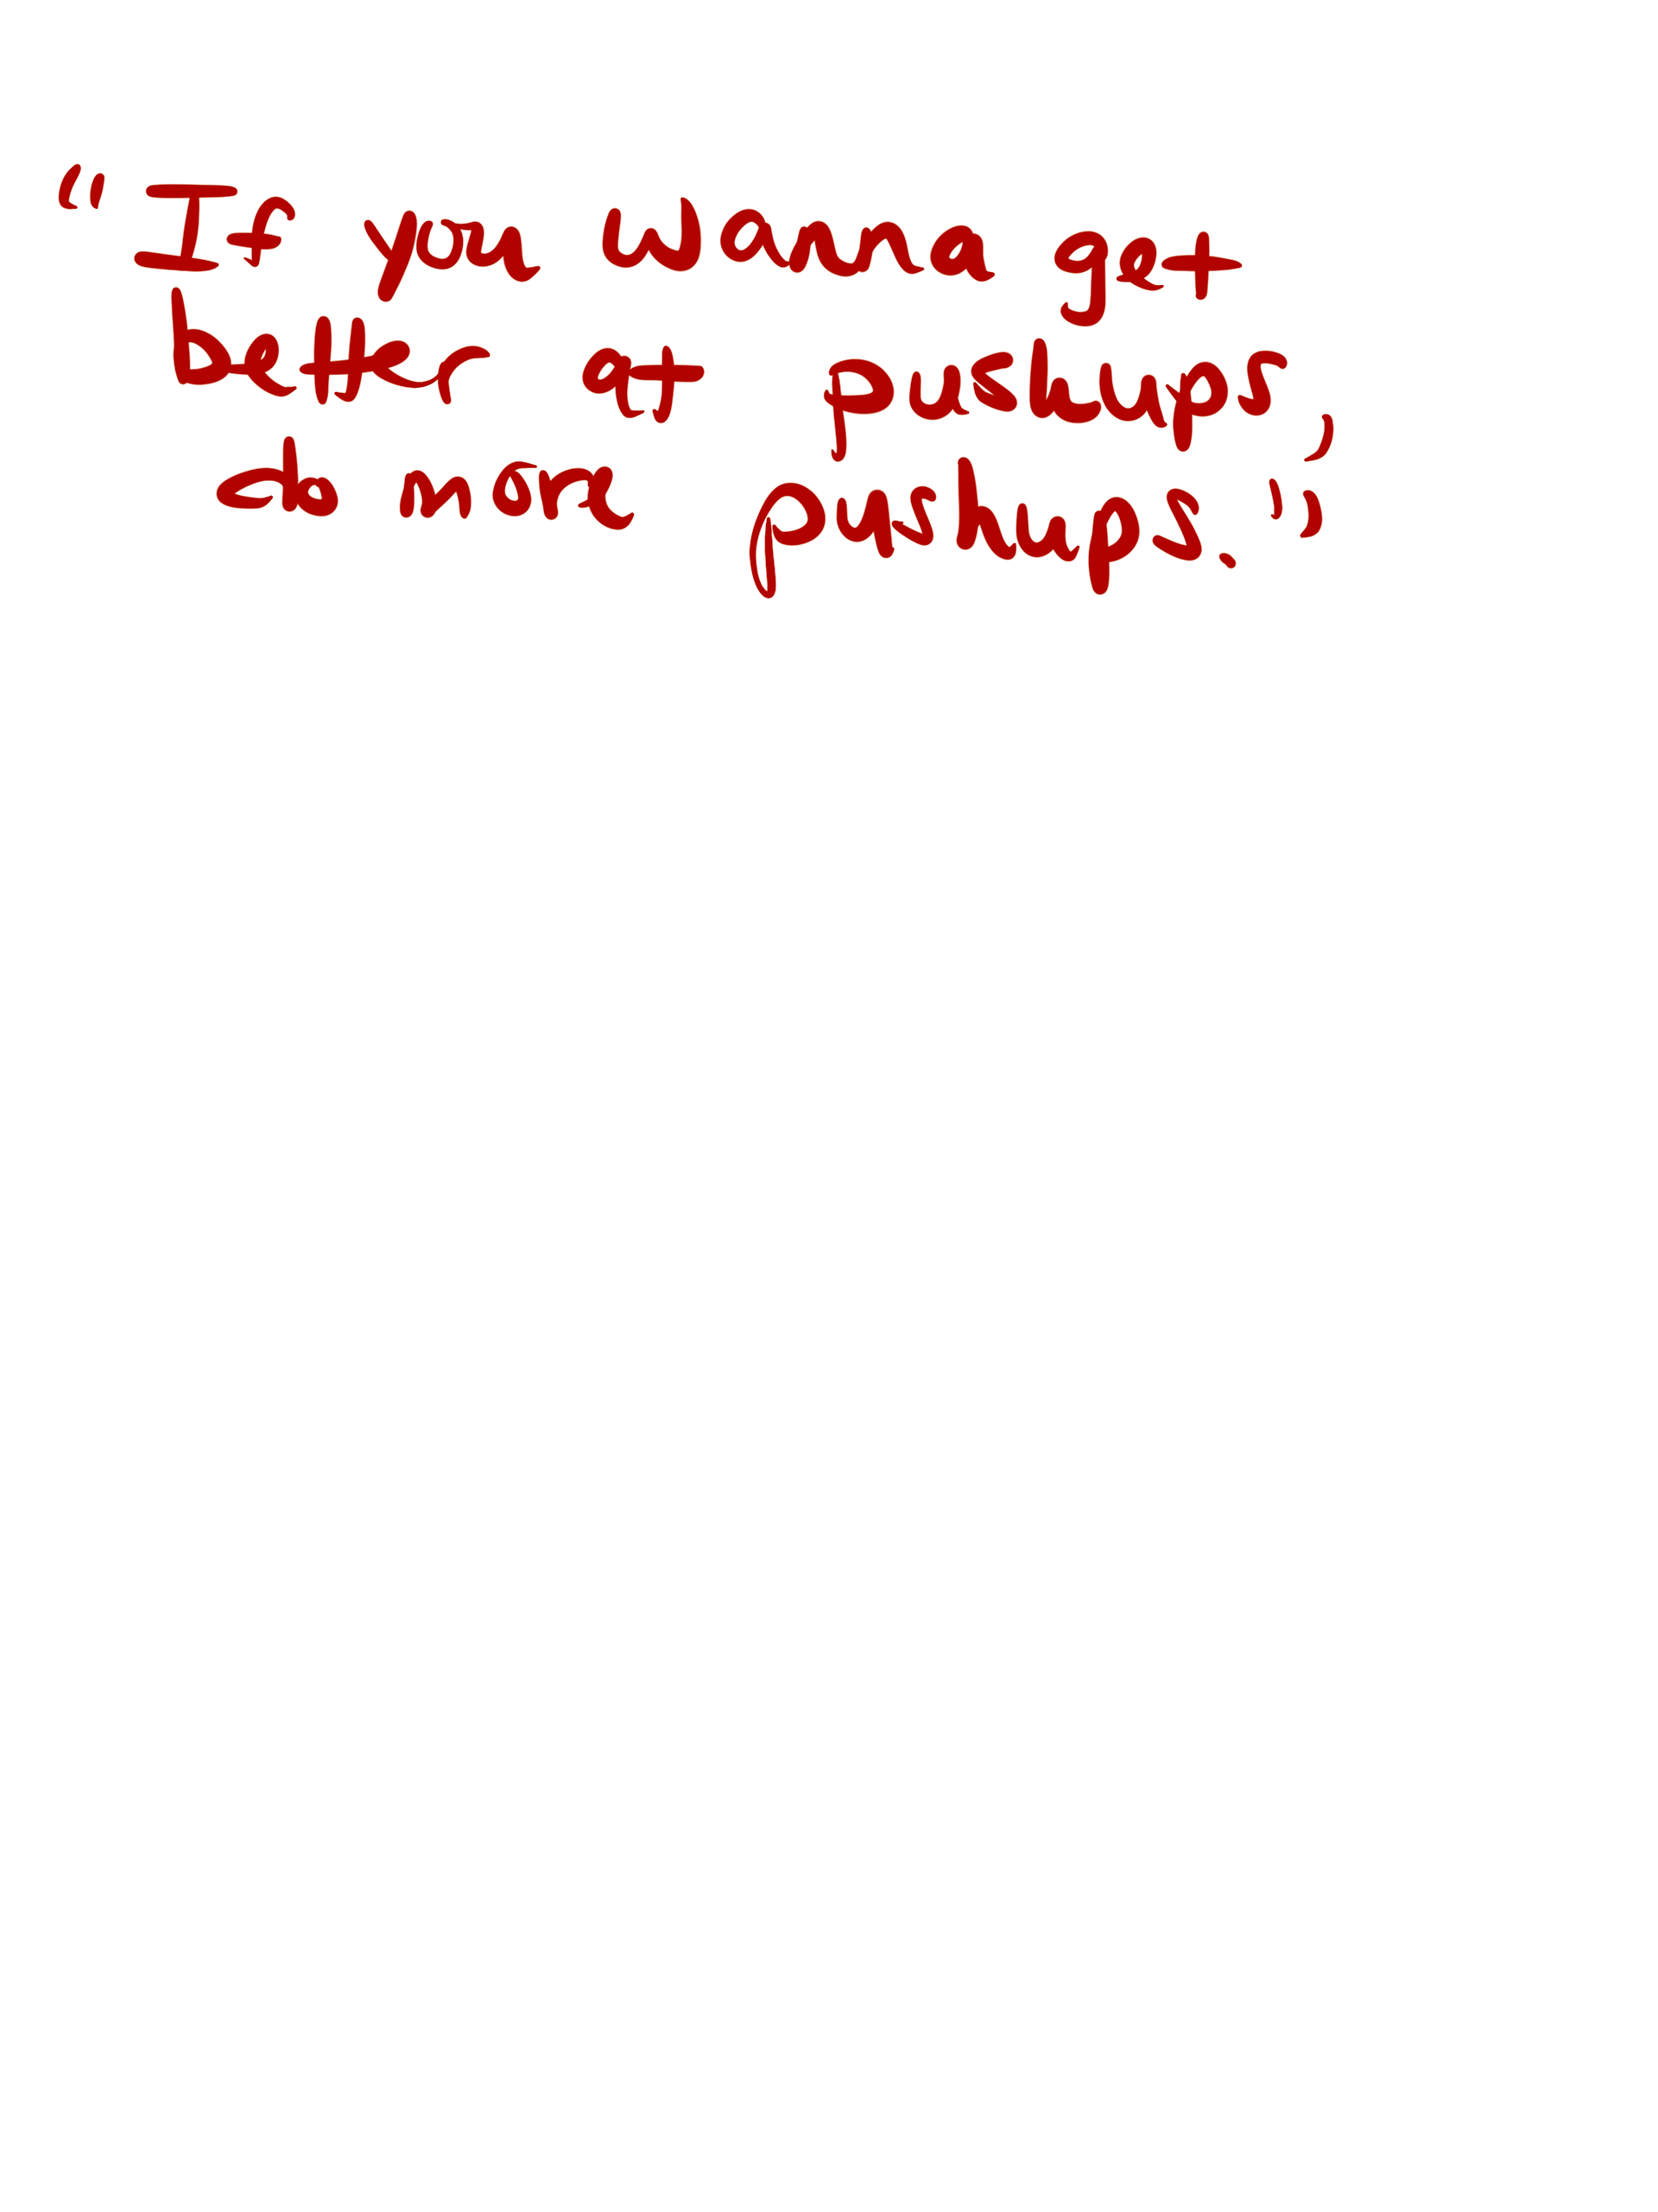 "If you wanna get
better at pushups,
do more pushups."